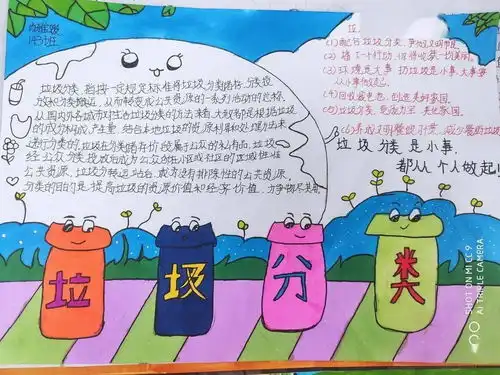 143班
垃圾分类,指按一定规定或标准将垃圾分类储存、分类投
放和分类搬运,从而转变成公共资源的一系列活动的总称
从国内外各城市对生活垃圾分类的方法来看,大致都是根据垃圾
的成分构成、产生量,结合本地垃圾的资源利用和处理方式来
进行分类的。垃圾在分类储存阶段属于公众的私有品,垃圾
经公众分类投放后成为公众所在小区或社区的区域性准
公共资源,垃圾分类搬运站台或
公共资源。
分类的目的是提高垃圾的资源价值和经济价值,力争物尽其用
(1)配合垃圾分类,争做文明市民
(3)环境是大事 扔垃圾是小事,大事要
从小事做起
(4)回收破色色,创造美好家园。
(5)垃圾分类,
(6)养成文明餐饮习惯,减少餐厨垃圾
垃圾分类是小事,
都从个人做起!
垃 圾 分 类
SHOT ON MI CC 9
AI TRIPLE CAMERA